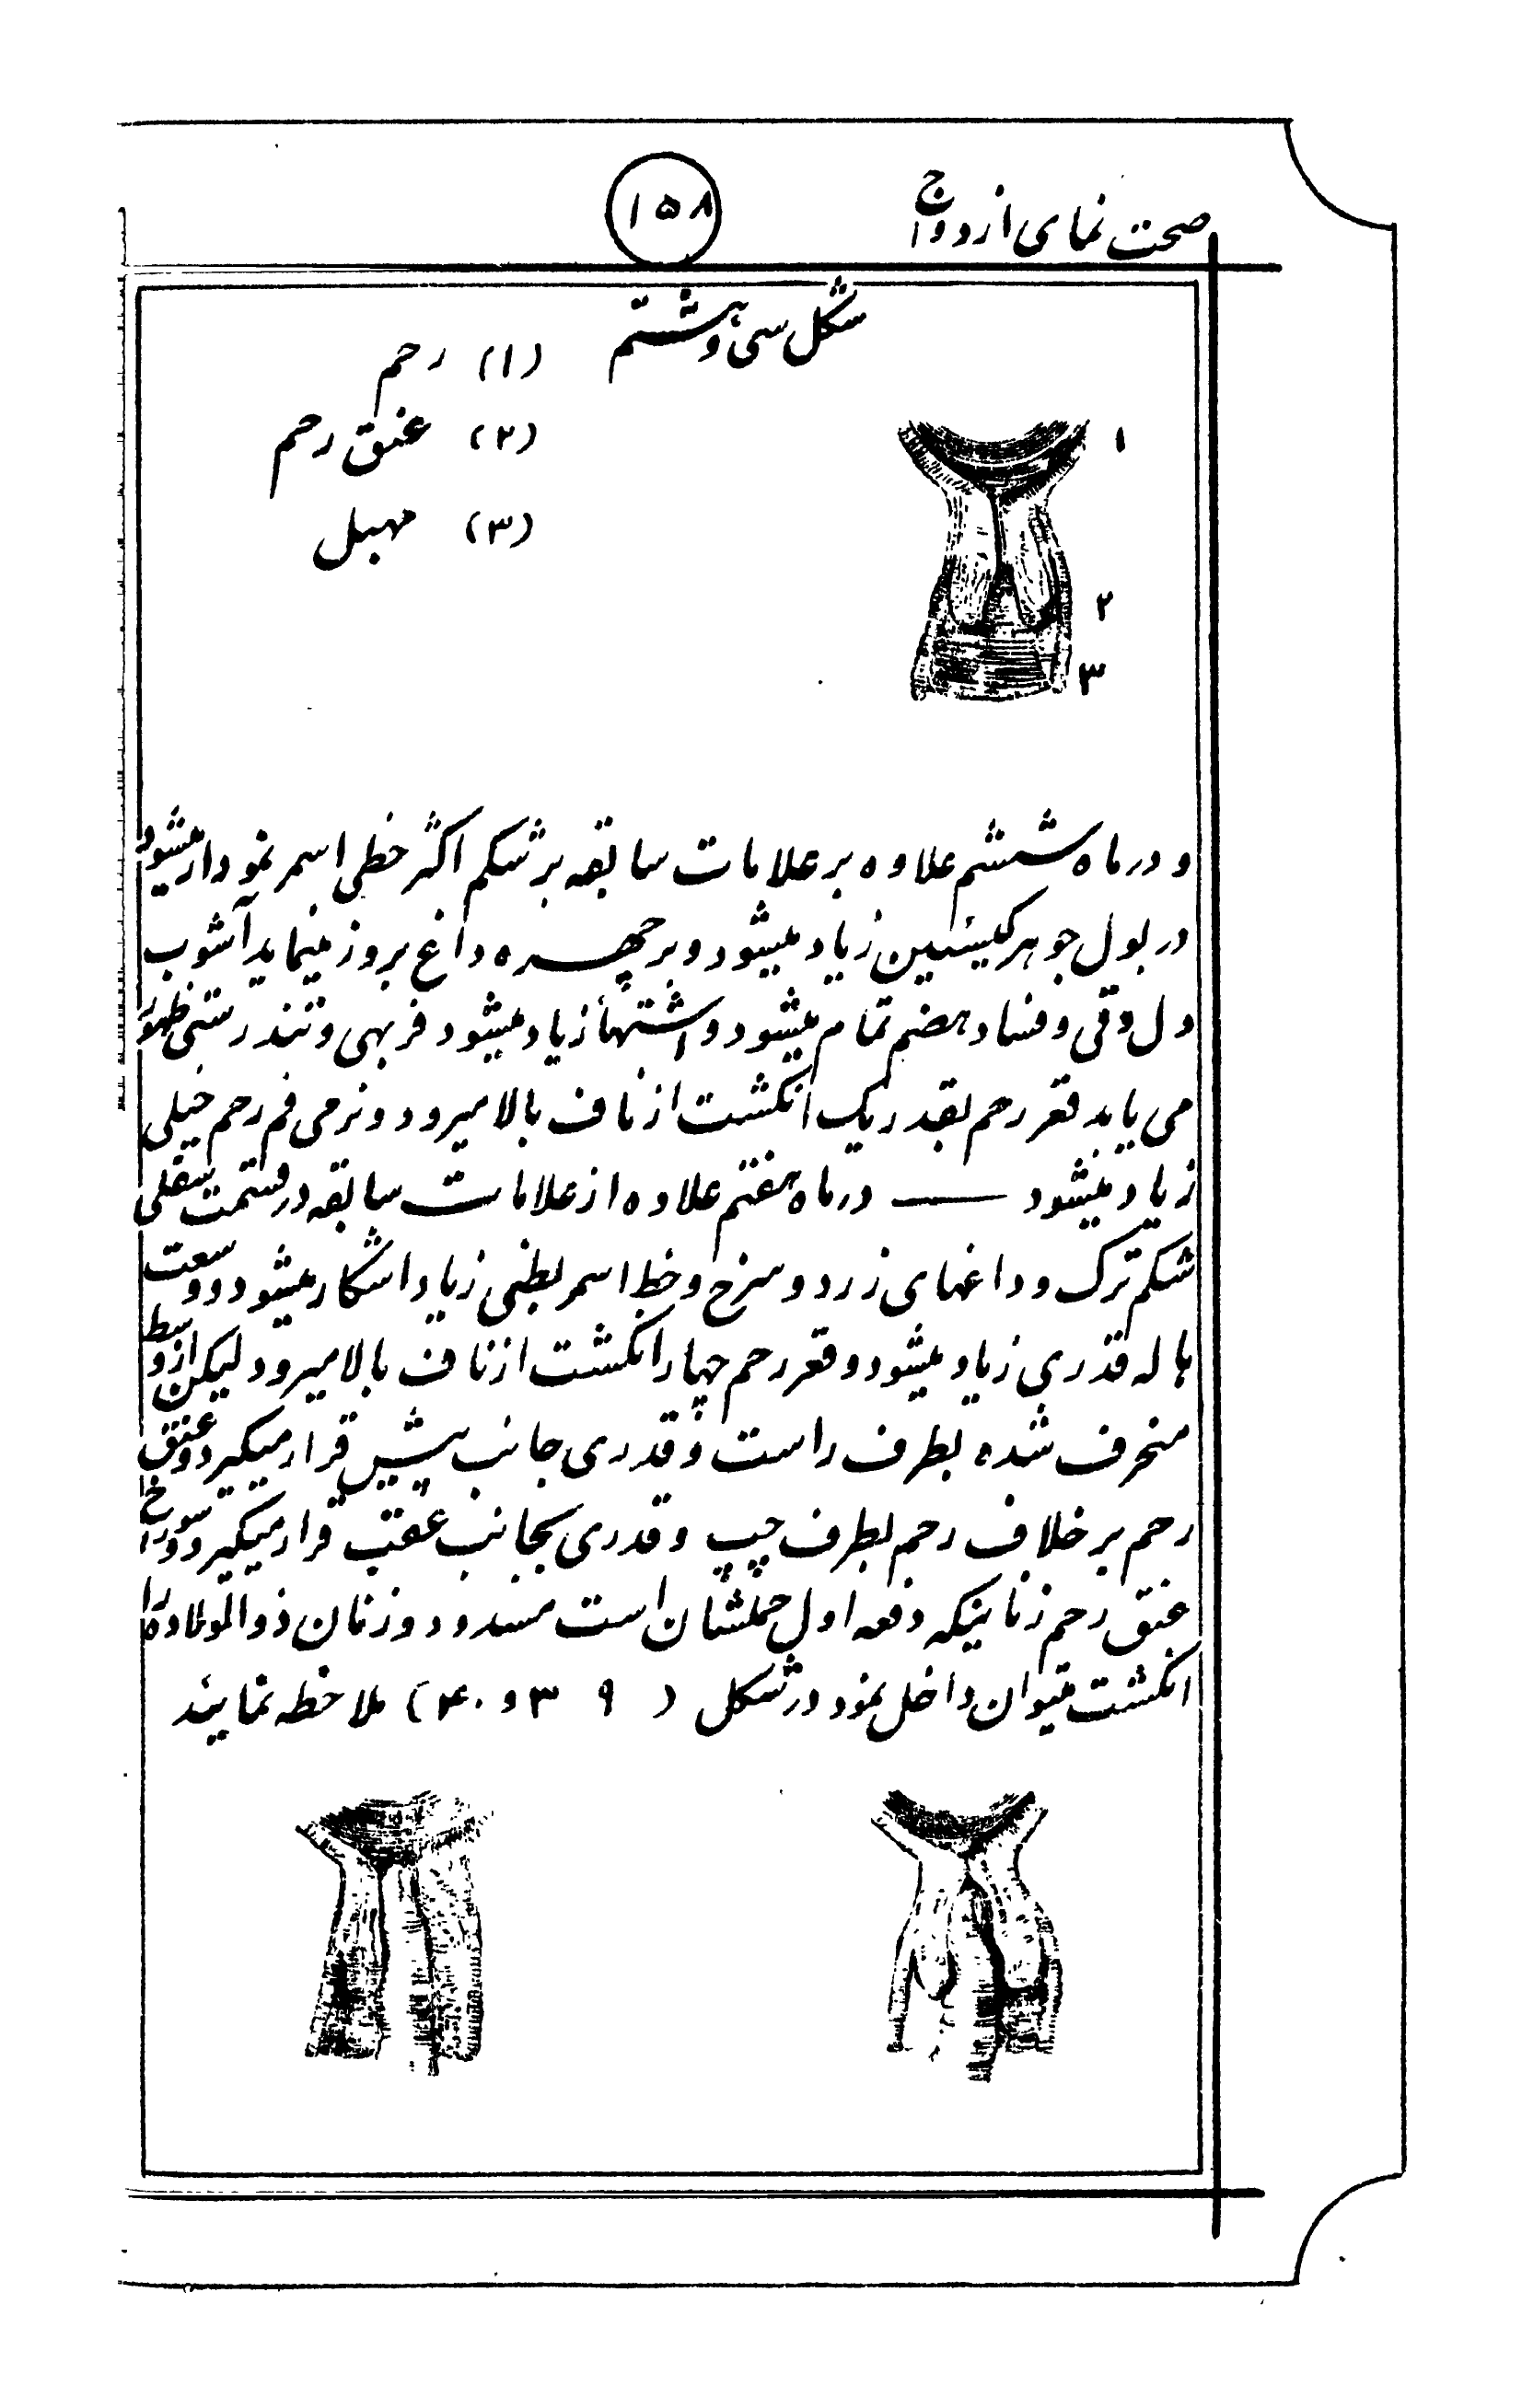 صحت نمای ازدواج
۱۵۸
شکل سی و هشتم
(۱) رحم
(۲) عنق رحم
(۳) مهبل
۱
۲
۳
و در ماه ششم علاوه بر علامات سابقه بر شکم اکثر خطی اسمر نمودار میشود
در بول جوهر کیستین زیاد میشود و بر چهره داغ بروز مینماید آشوب
دل و قی و فساد هضم تمام میشود و اشتها زیاد میشود فربهی و تندرستی ظهور
می یابد قعر رحم بقدر یک انگشت از ناف بالا میرود و نرمی فم رحم خیلی
زیاد میشود — در ماه هفتم علاوه از علامات سابقه در قسمت سفلی
شکم ترک و داغهای زرد و سرخ و خط اسمر بطنی زیاد اشکار میشود و وسعت
هاله قدری زیاد میشود و قعر رحم چهار انگشت از ناف بالا میرود لیکن از وسط
منحرف شده بطرف راست و قدری جانب پیش قرار میگیرد و عنق
رحم بر خلاف رحم بطرف چپ و قدری بجانب عقب قرار میگیرد و سوراخ
عنق رحم زنانیکه دفعه اول حملشان است مسدود و زنان ذوالولاده را
انگشت میتوان داخل نمود در شکل (۳۹ و ۴۰) ملاحظه نمایند